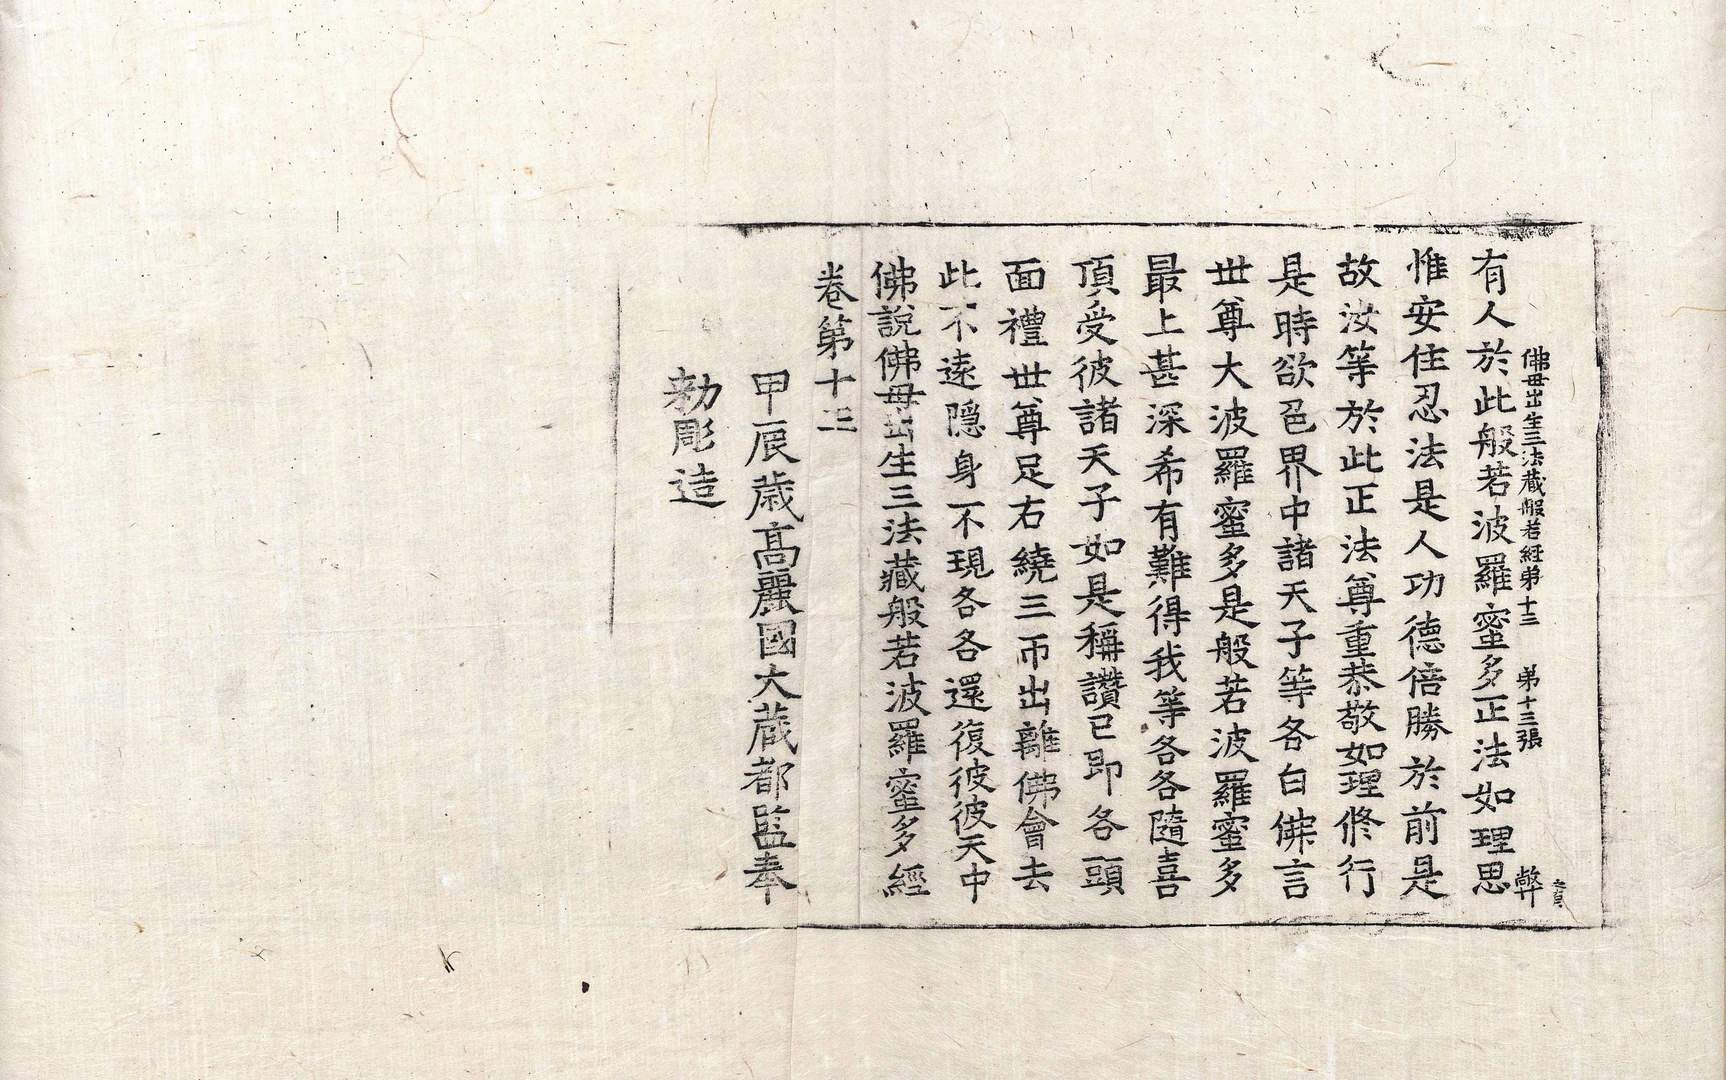 佛毋出生三法藏般若經第十三 第十三張 弊
有人於此般若波羅蜜多正法如理思
惟安住忍法是人功德倍勝於前是
故汝等於此正法尊重恭敬如理修行
是時欲色界中諸天子等各白佛言
世尊大波羅蜜多是般若波羅蜜多
最上甚深希有難得我等各各隨喜
頂受彼諸天子如是稱讚已即各頭
面禮世尊足右繞三帀出離佛會去
此不遠隱身不現各各還復彼彼天中
佛說佛母出生三法藏般若波羅蜜多經
卷第十三
甲辰歲高麗國大藏都監奉
勅彫造